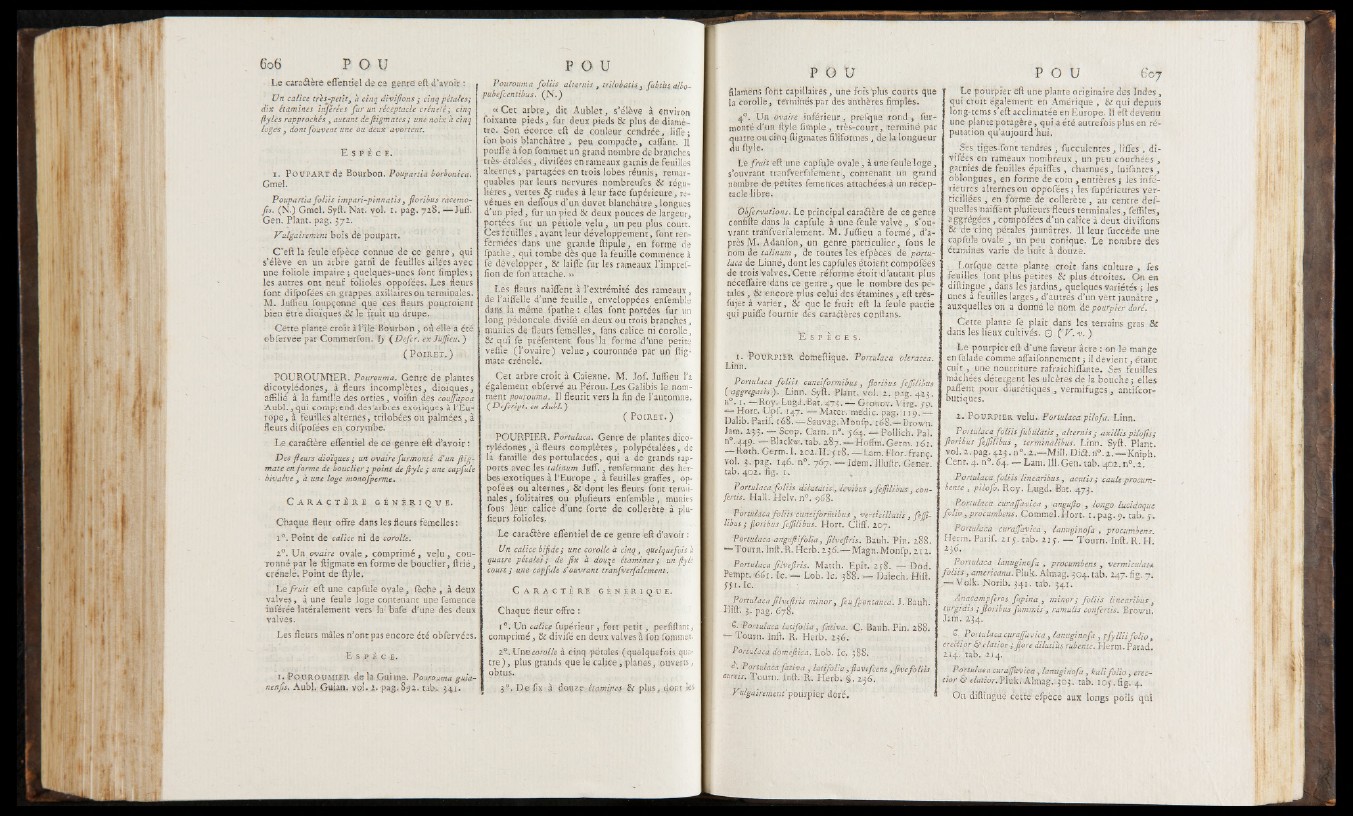 606 P O U
Le caractère essentiel de ce genre est d'avoir :
Un calice très-petit, à cinq divisions ; cinq pétales ;
dix étamines insérées sur un réceptacle crénelé ; cinq
styles rapprochés, autant de stigmates ; une noix à cinq
loges, dont souvent une ou deux avortent.
ESPÈCE.
1. POUPART de Bourbon. Poupartia borbonica.
Gmel.
Poupartia foliis impari-pinnatis, floribus racemo-
sis. (N.) Gmel. Syst. Nat. vol. 1. pag. 728. — Juss.
Gen. Plant. pag. 372.
Vulgairement bois de poupart.
C'est la seule espèce connue de ce genre, qui
s'élève en un arbre garni de feuilles ailées avec
une foliole impaire ; quelques-unes sont simples ;
les autres ont neuf folioles opposées. Les fleurs
sont disposées en grappes axillaires ou terminales.
M. Jussieu soupçonne que ces fleurs pourroient
bien être dioïques & le fruit un drupe.
Cette plante croît à l'île Bourbon, où elle a été
observée par Commerson. ♄ (Descr. ex Jussieu.)
(POIRET.)
POUROUMIER. Pourouma. Genre de plantes
dicotylédones, à fleurs incomplètes, dioïques,
affilié à la famille des orties, voisin des coussapoa
Aubl., qui comprend des arbres exotiques à l'Eu-
rope, à feuilles alternes, trilobées ou palmées, à
fleurs disposées en corymbe.
Le caractère essentiel de ce genre est d'avoir :
Des fleurs dioïques ; un ovaire surmonté d'un stig-
mate en forme de bouclier ; point de style ; une capsule
bivalve, à une loge monosperme.
CARACTÈRE GÉNÉRIQUE.
Chaque fleur offre dans les fleurs femelles :
1°. Point de calice ni de corolle.
2°. Un ovaire ovale, comprimé, velu, cou-
ronné par le stigmate en forme de bouclier, strié,
crénelé. Point de style.
Le fruit est une capsule ovale, sèche, à deux
valves, à une seule loge contenant une semence
insérée latéralement vers la base d'une des deux
valves.
Les fleurs mâles n'ont pas encore été observées.
ESPÈCE.
1. POUROUMIER de la Guiane. Pourouma guia-
nensis. Aubl. Guian. vol. 2. pag. 892. tab. 341.
P O U
Pourouma foliis alternis, trilobatis, subtùs albo-
pubescentibus. (N.)
« Cet arbre, dit Aublet, s'élève à environ
soixante pieds, sur deux pieds & plus de diamè-
tre. Son écorce est de couleur cendrée, lisse ;
son bois blanchâtre, peu compacte, cassant. Il
pousse à son sommet un grand nombre de branches
très-étalées, divisées en rameaux garnis de feuilles
alternes, partagées en trois lobes réunis, remar-
quables par leurs nervures nombreuses & régu-
lières, vertes & rudes à leur face supérieure, re-
vêtues en dessous d'un duvet blanchâtre, longues
d'un pied, sur un pied & deux pouces de largeur,
portées sur un pétiole velu, un peu plus court.
Ces feuilles, avant leur développement, sont ren-
fermées dans une grande stipule, en forme de
spathe, qui tombe dès que la feuille commence à
se développer, & laisse sur les rameaux l'impres-
sion de son attache. »
Les fleurs naissent à l'extrémité des rameaux,
de l'aisselle d'une feuille, enveloppées ensemble
dans la même spathe : elles sont portées sur un
long pédoncule divisé en deux ou trois branches,
munies de fleurs femelles, sans calice ni corolle,
& qui se présentent sous la forme d'une petite
vessie (l'ovaire) velue, couronnée par un stig-
mate crénelé.
Cet arbre croît à Caïenne. M. Jos. Jussieu l'a
également observé au Pérou. Les Galibis le nom-
ment pourouma. Il fleurit vers la fin de l'automne.
(Descript. ex Aubl.)
(POIRET.)
POURPIER. Portulaca. Genre de plantes dico-
tylédones, à fleurs complètes, polypétalées, de
la famille des portulacées, qui a de grands rap-
ports avec les talinum Juss., renfermant des her-
bes exotiques à l'Europe, à feuilles grasses, op-
posées ou alternes, & dont les fleurs sont termi-
nales, solitaires ou plusieurs ensemble, munies
sous leur calice d'une sorte de collerète à plu-
sieurs folioles.
Le caractère essentiel de ce genre est d'avoir :
Un calice bifide ; une corolle à cinq, quelquefois à
quatre pétales ; de six à douze étamines ; un style
court ; une capsule s'ouvrant transversalement.
CARACTÈRE GÉNÉRIQUE.
Chaque fleur offre :
1°. Un calice supérieur, fort petit, persistant,
comprimé, & divisé en deux valves à son sommet.
2°. Une corolle à cinq pétales (quelquefois qua-
tre), plus grands que le calice, planes, ouverts,
obtus.
3°. De six à douze étamines & plus, dont les
P O U
filamens sont capillaires, une fois plus courts que
la corolle, terminés par des anthères simples.
4°. Un ovaire inférieur, presque rond, sur-
monté d'un style simple, très-court, terminé par
quatre ou cinq stigmates filiformes, de la longueur
du style.
Le fruit est une capsule ovale, à une seule loge,
s'ouvrant transversalement, contenant un grand
nombre de petites semences attachées à un récep-
tacle libre.
Observations. Le principal caractère de ce genre
consiste dans la capsule à une seule valve, s'ou-
vrant transversalement. M. Jussieu a formé, d'a-
près M. Adanson, un genre particulier, sous le
nom de talinum, de toutes les espèces de portu-
laca de Linné, dont les capsules étoient composées
de trois valves. Cette réforme étoit d'autant plus
nécessaire dans ce genre, que le nombre des pé-
tales, & encore plus celui des étamines, est très-
sujet à varier, & que le fruit est la seule partie
qui puisse fournir des caractères constans.
ESPÈCES.
1. POURPIER domestique. Portulaca oleracea.
Linn.
Portulaca foliis cuneiformibus, floribus sessilibus
(aggregatis). Linn. Syst. Plant. vol. 2. pag. 423.
n°. 1. — Roy. Lugd.-Bat. 473. — Gronov. Virg. 59.
— Hort. Ups. 147. — Mater. medic. pag. 119. —
Dalib. Paris. 168. — Sauvag. Monsp. 168. — Brown.
Jam. 233. — Scop. Carn. n°. 564. — Pollich. Pal.
n°. 449. — Blackw. tab. 287. — Hoffm. Germ. 162.
— Roth. Germ. I. 202. II. 518. — Lam. Flor. franç.
vol. 3. pag. 146. n°. 767. — Idem. Illustr. Gener.
tab. 402. fig. 1.
Portulaca foliis dilutatis, levibus, sessilibus, con-
fertis. Hall. Helv. n°. 968.
Portulaca foliis cuneiformibus, verticillatis, sessi-
libus ; floribus sessilibus. Hort. Cliff. 207.
Portulaca angustifolia, silvestris. Bauh. Pin. 288.
— Tourn. Inst. R. Herb. 236. — Magn. Monsp. 212.
Portulaca silvestris. Matth. Epit. 258. — Dod.
Pempt. 661. Ic. — Lob. Ic. 388. — Dalech. Hist.
551. Ic.
Portulaca silvestris minor, seu spontanea. J. Bauh.
Hist. 3. pag. 678.
C. Portulaca latifolia, sativa. C. Bauh. Pin. 288.
— Tourn. Inst. R. Herb. 236.
Portulaca domestica. Lob. Ic. 388.
Portulaca sativa, latifolia, flavescens, sive foliis
aureis. Tourn. Inst. R. Herb. 236.
Vulgairement pourpier doré.
P O U 607
Le pourpier est une plante originaire des Indes,
qui croît également en Amérique, & qui depuis
long-tems s'est acclimatée en Europe. Il est devenu
une plante potagère, qui a été autrefois plus en ré-
putation qu'aujourd'hui.
Ses tiges sont tendres, succulentes, lisses, di-
visées en rameaux nombreux, un peu couchées,
garnies de feuilles épaisses, charnues, luisantes,
oblongues, en forme de coin, entières ; les infé-
rieures alternes ou opposées ; les supérieures ver-
ticillées, en forme de collerète, au centre des-
quelles naissent plusieurs fleurs terminales, sessiles,
aggrégées, composées d'un calice à deux divisions
& de cinq pétales jaunâtres. Il leur succède une
capsule ovale, un peu conique. Le nombre des
étamines varie de huit à douze.
Lorsque cette plante croît sans culture, ses
feuilles sont plus petites & plus étroites. On en
distingue, dans les jardins, quelques variétés ; les
unes à feuilles larges, d'autres d'un vert jaunâtre,
auxquelles on a donné le nom de pourpier doré.
Cette plante se plaît dans les terrains gras &
dans les lieux cultivés. ☉ (V. v.)
Le pourpier est d'une saveur âcre : on le mange
en salade comme assaisonnement ; il devient, étant
cuit, une nourriture rafraîchissante. Ses feuilles
mâchées détergent les ulcères de la bouche ; elles
passent pour diurétiques, vermifuges, antiscor-
butiques.
2. POURPIER velu. Portulaca pilosa. Linn.
Portulaca foliis subulatis, alternis ; axillis pilosis ;
floribus sessilibus, terminalibus. Linn. Syst. Plant.
vol. 2. pag. 423. n°. 2. — Mill. Dict. n°. 2. — Kniph.
Cent. 4. n°. 64. — Lam. Ill. Gen. tab. 402. n°. 2.
Portulaca foliis linearibus, acutis ; caule procum-
bente, piloso. Roy. Lugd. Bat. 473.
Portulaca curassavica, angusto, longo lucidoque
folio, procumbens. Commel. Hort. 1. pag. 9. tab. 5.
Portulaca curassavica, lanuginosa, procumbens.
Herm. Paris. 215. tab. 215. — Tourn. Inst. R. H.
236.
Portulaca lanuginosa, procumbens, vermiculata
foliis, americana. Pluk. Almag. 304. tab. 247. fig. 7.
— Volk. Norib. 341. tab. 341.
Anacampseros supina, minor ; foliis linearibus,
turgidis ; floribus summis, ramulis confertis. Brown.
Jam. 234.
Portulaca curassavica, lanuginosa, psyllii folio,
erectior & elatior ; flore dilutiùs rubente. Herm. Parad.
214. tab. 214.
Portulaca curassavica, lanuginosa, kali folio, erec-
tior & elatior. Pluk. Almag. 303. tab. 105. fig. 4.
On distingue cette espèce aux longs poils qui